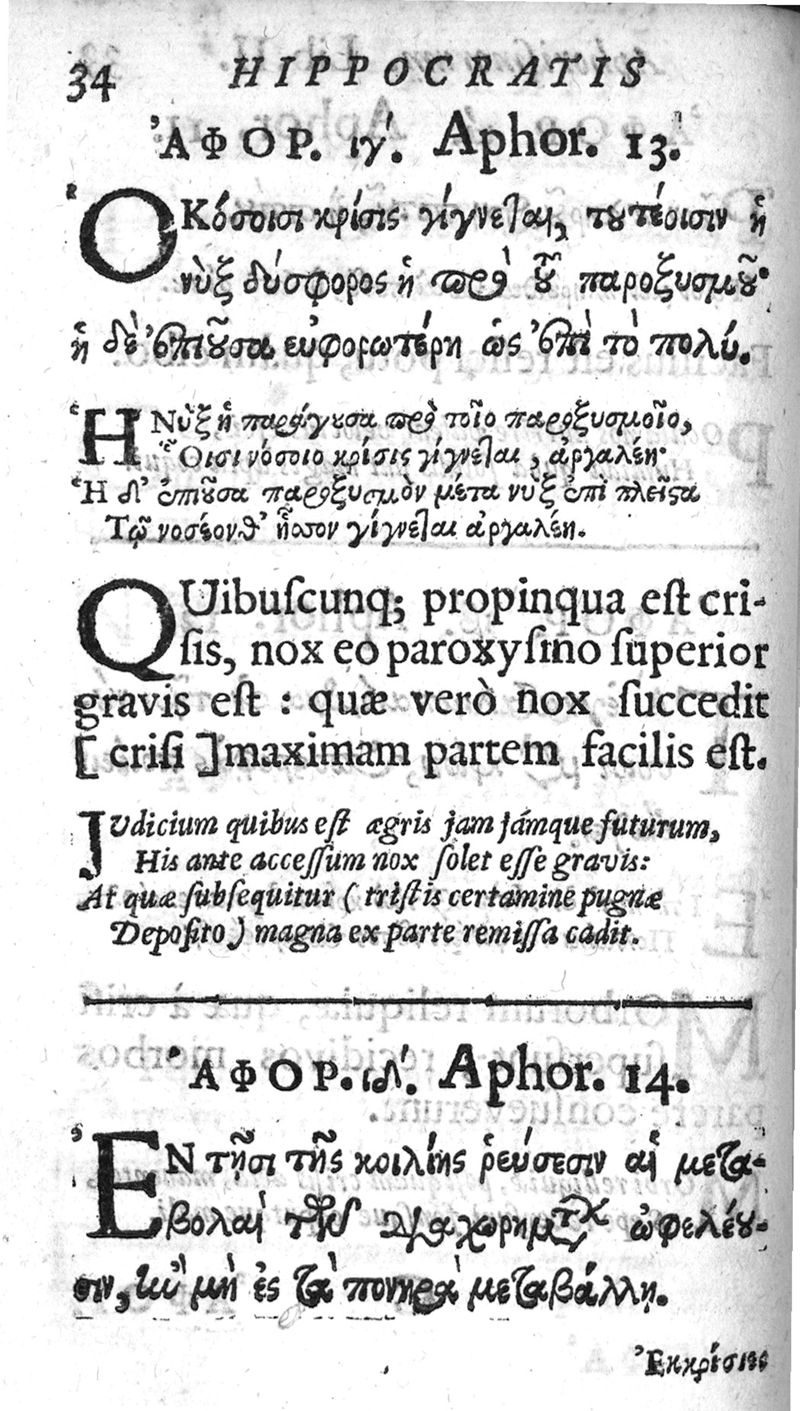 34 HIPPOCRATIS
ἈΦΟΡ. ιγʹ. Aphor. 13.
ὉΚόσοισι κρίσις γίγνεται, τουτέοισιν ἡ
νὺξ δύσφορος ἡ πρὸ τοῦ παροξυσμοῦ·
ἡ δὲ ἐπιοῦσα εὐφορωτέρη ὡς ἐπὶ τὸ πολύ.
ἩΝὺξ ἡ παράγουσα πρὸ τοῖο παροξυσμοῖο,
Οἷσι νόσοιο κρίσις γίγνεται, ἀργαλέη·
Ἡ δ' ἐπιοῦσα παροξυσμὸν μέτα νὺξ ἐπὶ πλεῖστα
Τῶν νοσέονθ' ἧσσον γίγνεται ἀργαλέη.
QUibuſcunq; propinqua eſt cri-
ſis, nox eo paroxyſmo ſuperior
gravis eſt : quæ verò nox ſuccedit
[ criſi ] maximam partem facilis eſt.
JUdicium quibus eſt ægris jam jámque futurum,
His ante acceſſum nox ſolet eſſe gravis:
At quæ ſubſequitur ( triſtis certamine pugnæ
Depoſito ) magna ex parte remiſſa cadit.
ἈΦΟΡ. ιδʹ. Aphor. 14.
ἘΝ τῇσι τῆς κοιλίης ῥεύσεσιν αἱ μετα-
βολαὶ τῶν διαχωρημάτων ὠφελέου-
σιν, ἢν μὴ ἐς τὰ πονηρὰ μεταβάλλῃ.
Ἐκκρίσιες